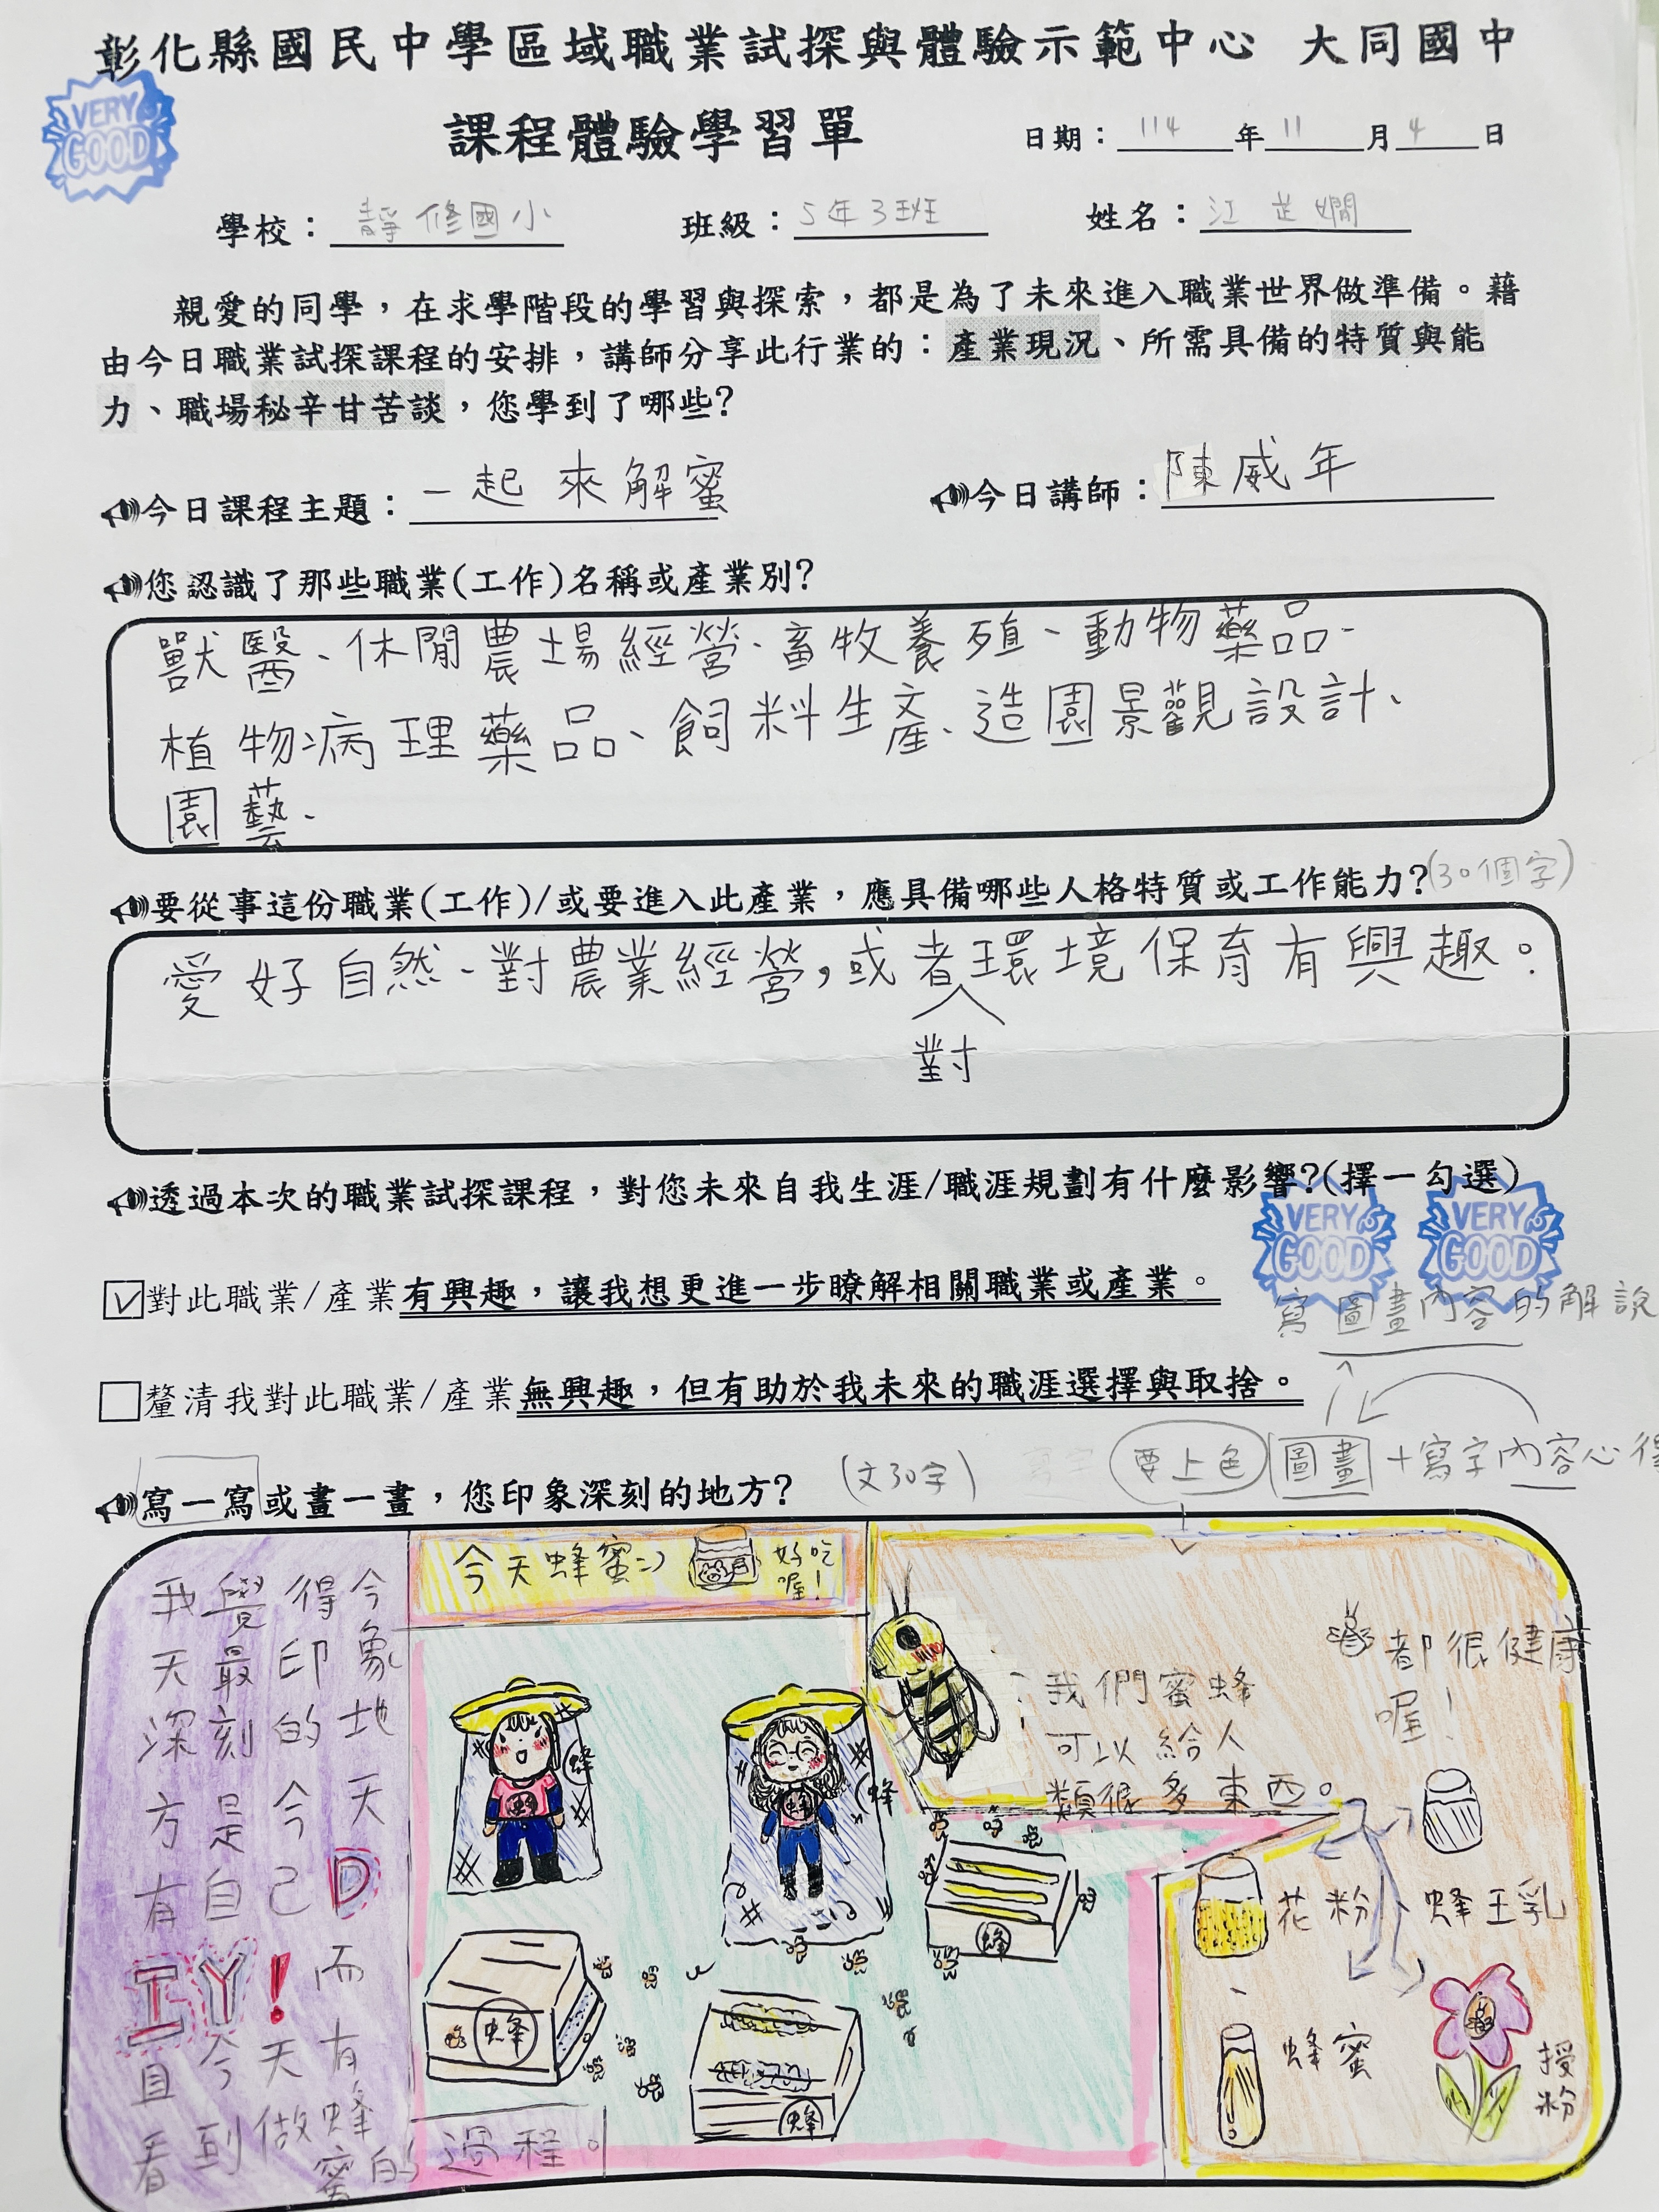 彰化縣國民中學區域職業試探與體驗示範中心 大同國中
VERY
GOOD
課程體驗學習單
日期：114年11月4日
學校：靜修國小 班級：5年3班 姓名：江芷嫺
親愛的同學，在求學階段的學習與探索，都是為了未來進入職業世界做準備。藉
由今日職業試探課程的安排，講師分享此行業的：產業現況、所需具備的特質與能
力、職場秘辛甘苦談，您學到了哪些？
今日課程主題：一起來解蜜 今日講師：陳威年
您認識了那些職業(工作)名稱或產業別？
獸醫、休閒農場經營、畜牧養殖、動物藥品、
植物病理藥品、飼料生產、造園景觀設計、
園藝、
要從事這份職業(工作)/或要進入此產業，應具備哪些人格特質或工作能力？(30個字)
愛好自然、對農業經營，或者環境保育有興趣。
對
透過本次的職業試探課程，對您未來自我生涯/職涯規劃有什麼影響?(擇一勾選)
VERY
GOOD
VERY
GOOD
☑對此職業/產業有興趣，讓我想更進一步瞭解相關職業或產業。
寫圖畫內容的解說
□釐清我對此職業/產業無興趣，但有助於我未來的職涯選擇與取捨。
寫一寫或畫一畫，您印象深刻的地方？ (文30字) 要上色 圖畫+寫字內容心得
我覺得今
天最印象
深刻的地
方是今天
有自己D
IY！而
且今天有
看到做蜂
蜜的過程。
今天蜂蜜:)
好吃
喔！
蜂
蜂
蜂
蜂
蜂
蜂
蜂
我們蜜蜂
可以給人
類很多東西。
都很健康
喔！
花粉、蜂王乳
、
蜂蜜
授
粉